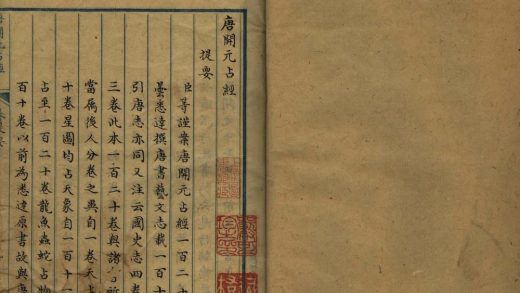 唐開元占經
提要
臣等謹案唐開元占經一百二十
曇悉達撰唐書藝文志載一百十
引唐志亦同又注云國史志四卷
三卷此本一百二十卷與諸所
當屬後人分卷之異自一卷天占
十卷星圖均占天象自一百十一
占至一百二十卷龍魚蟲蛇占物
百十卷以前為悉達原書故與唐
唐開元占經